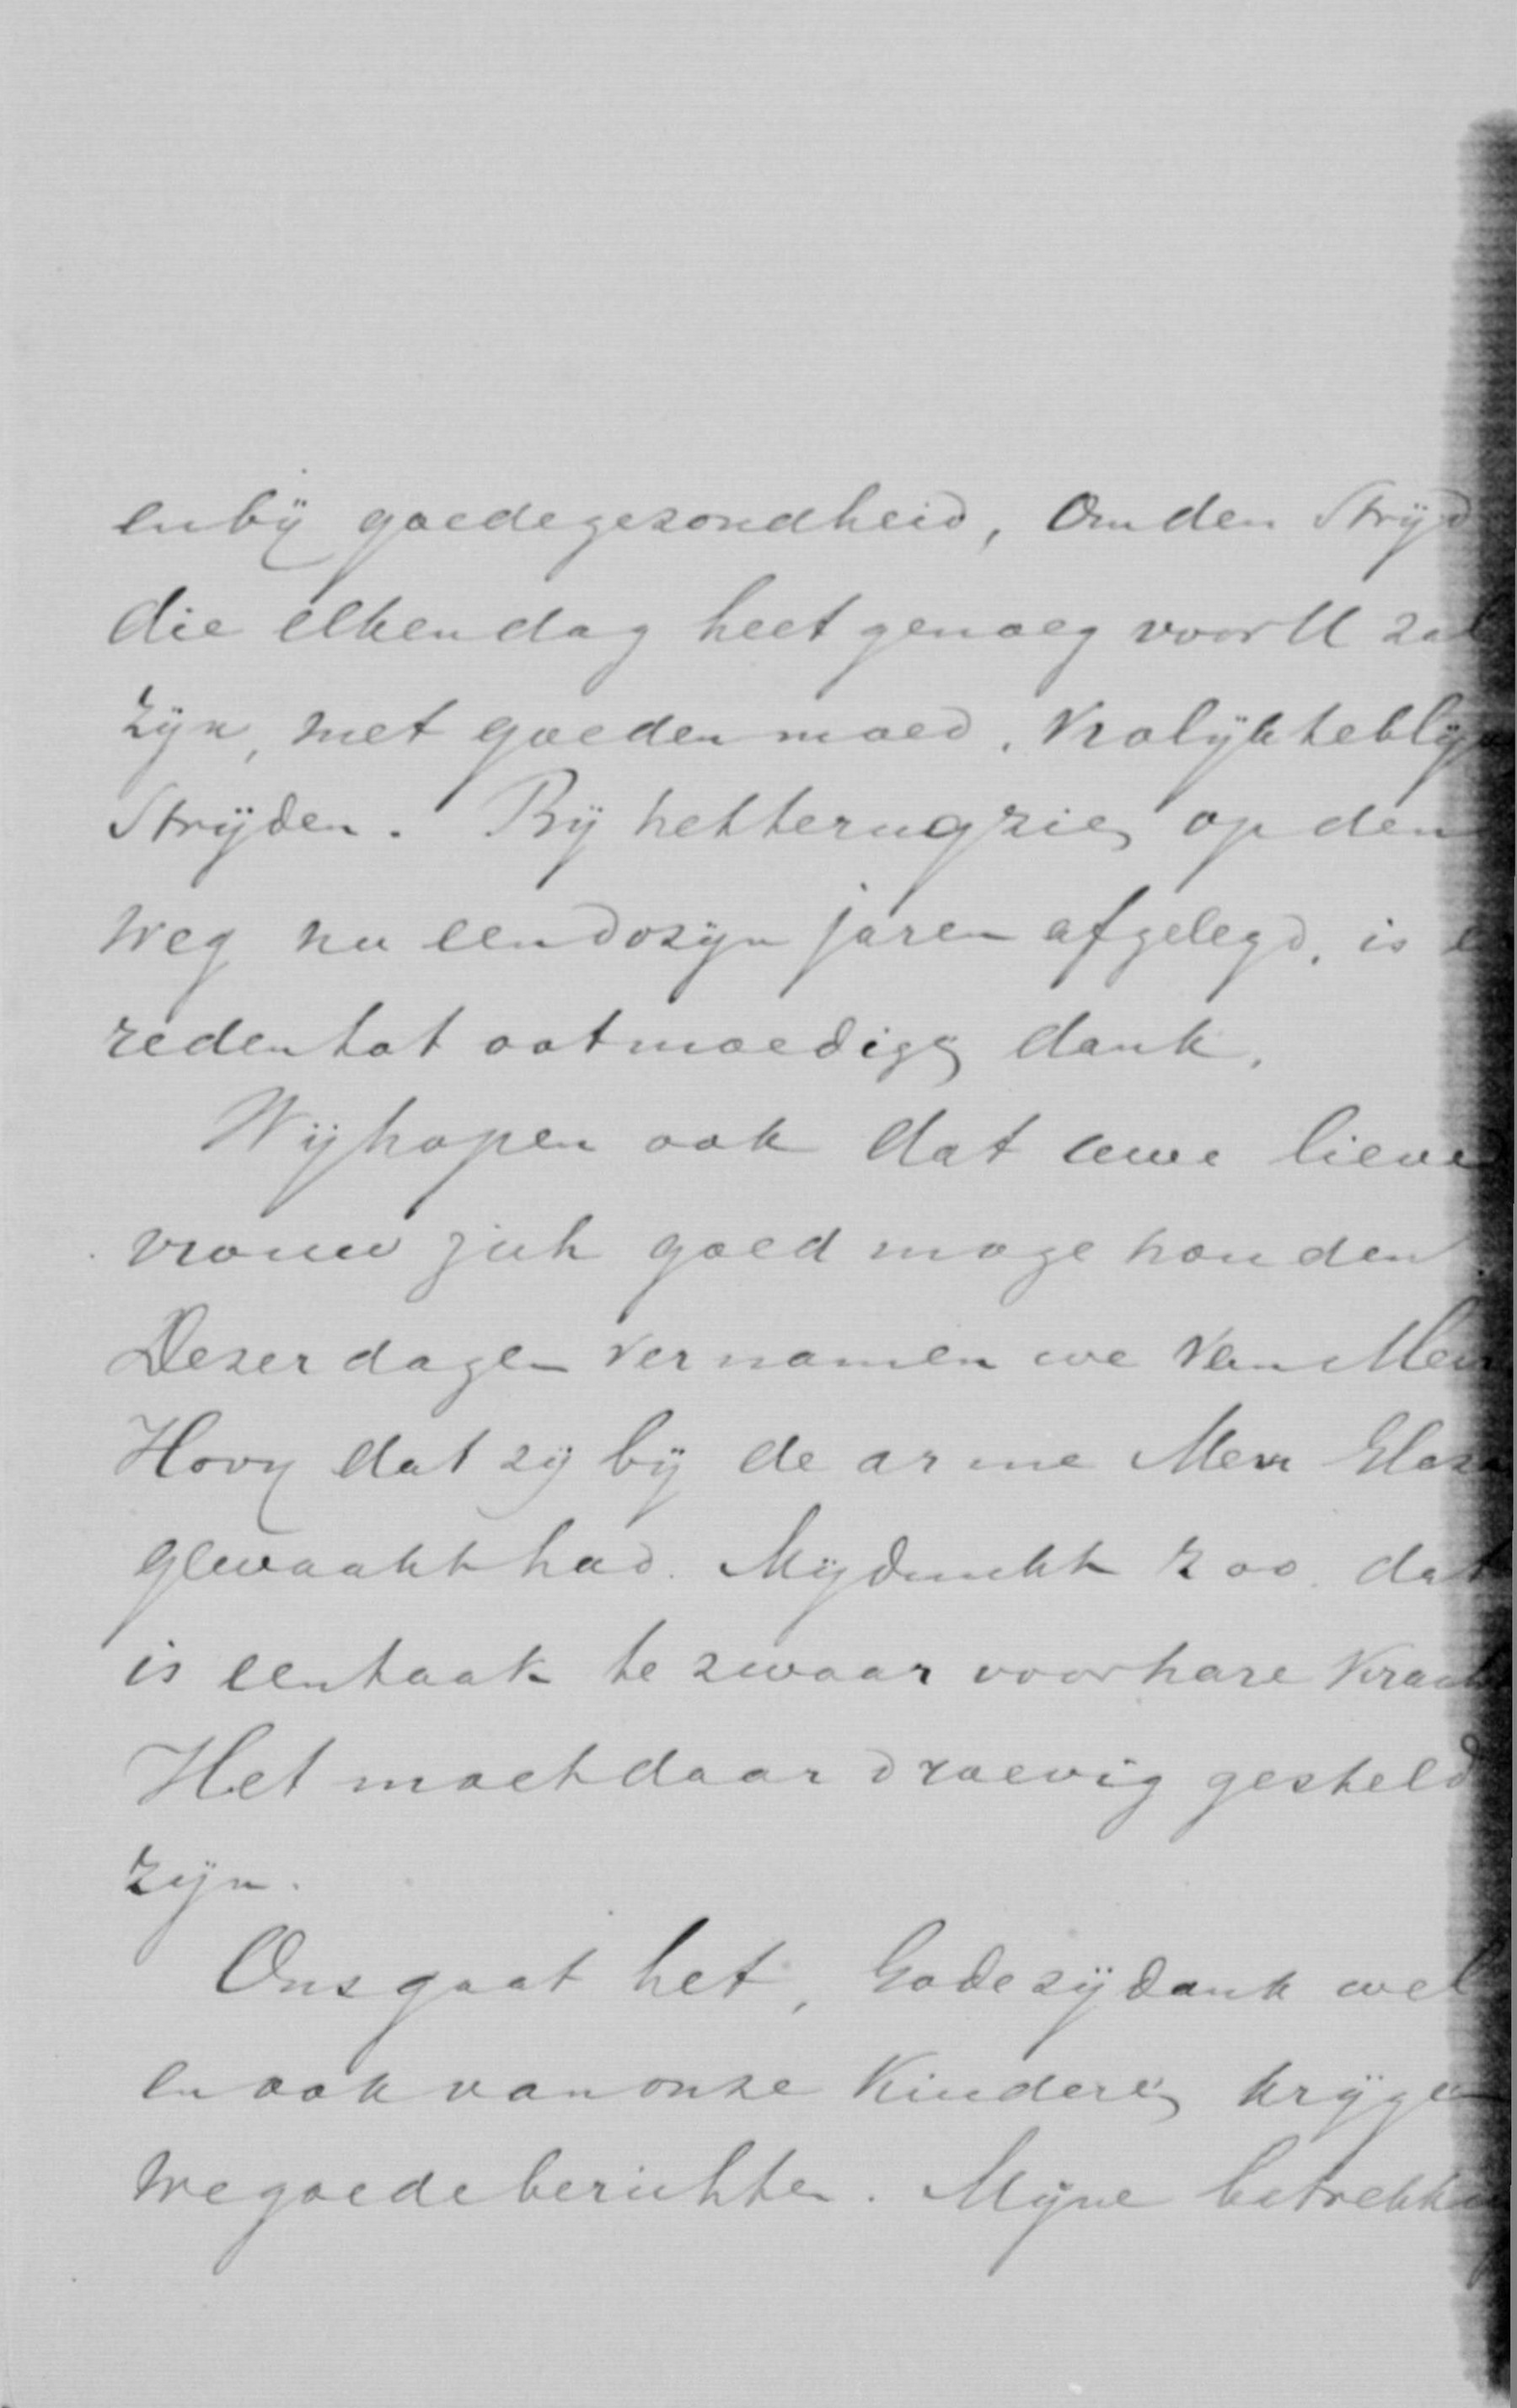 en bij goede gezondheid, om den Strijd
die elken dag heet genoeg voor U zal
zijn, met goeden moed, vrolijk te blijven
Strijden. Bij het terugzien op den
weg nu een dozijn jaren afgelegd, is er
reden tot ootmoedigen dank.
Wij hopen ook dat uwe lieve
vrouw zich goed moge houden.
Dezer dagen vernamen we van Mevr
Hovy dat zij bij de arme Mevr
gewaakt had. Mij dunkt zoo dat
is een taak te zwaar voor hare
Het moet daar droevig gesteld
zijn.
Ons gaat het, Gode zij dank wel
en ook van onze kinderen krijgen
we goede berichten. Mijne